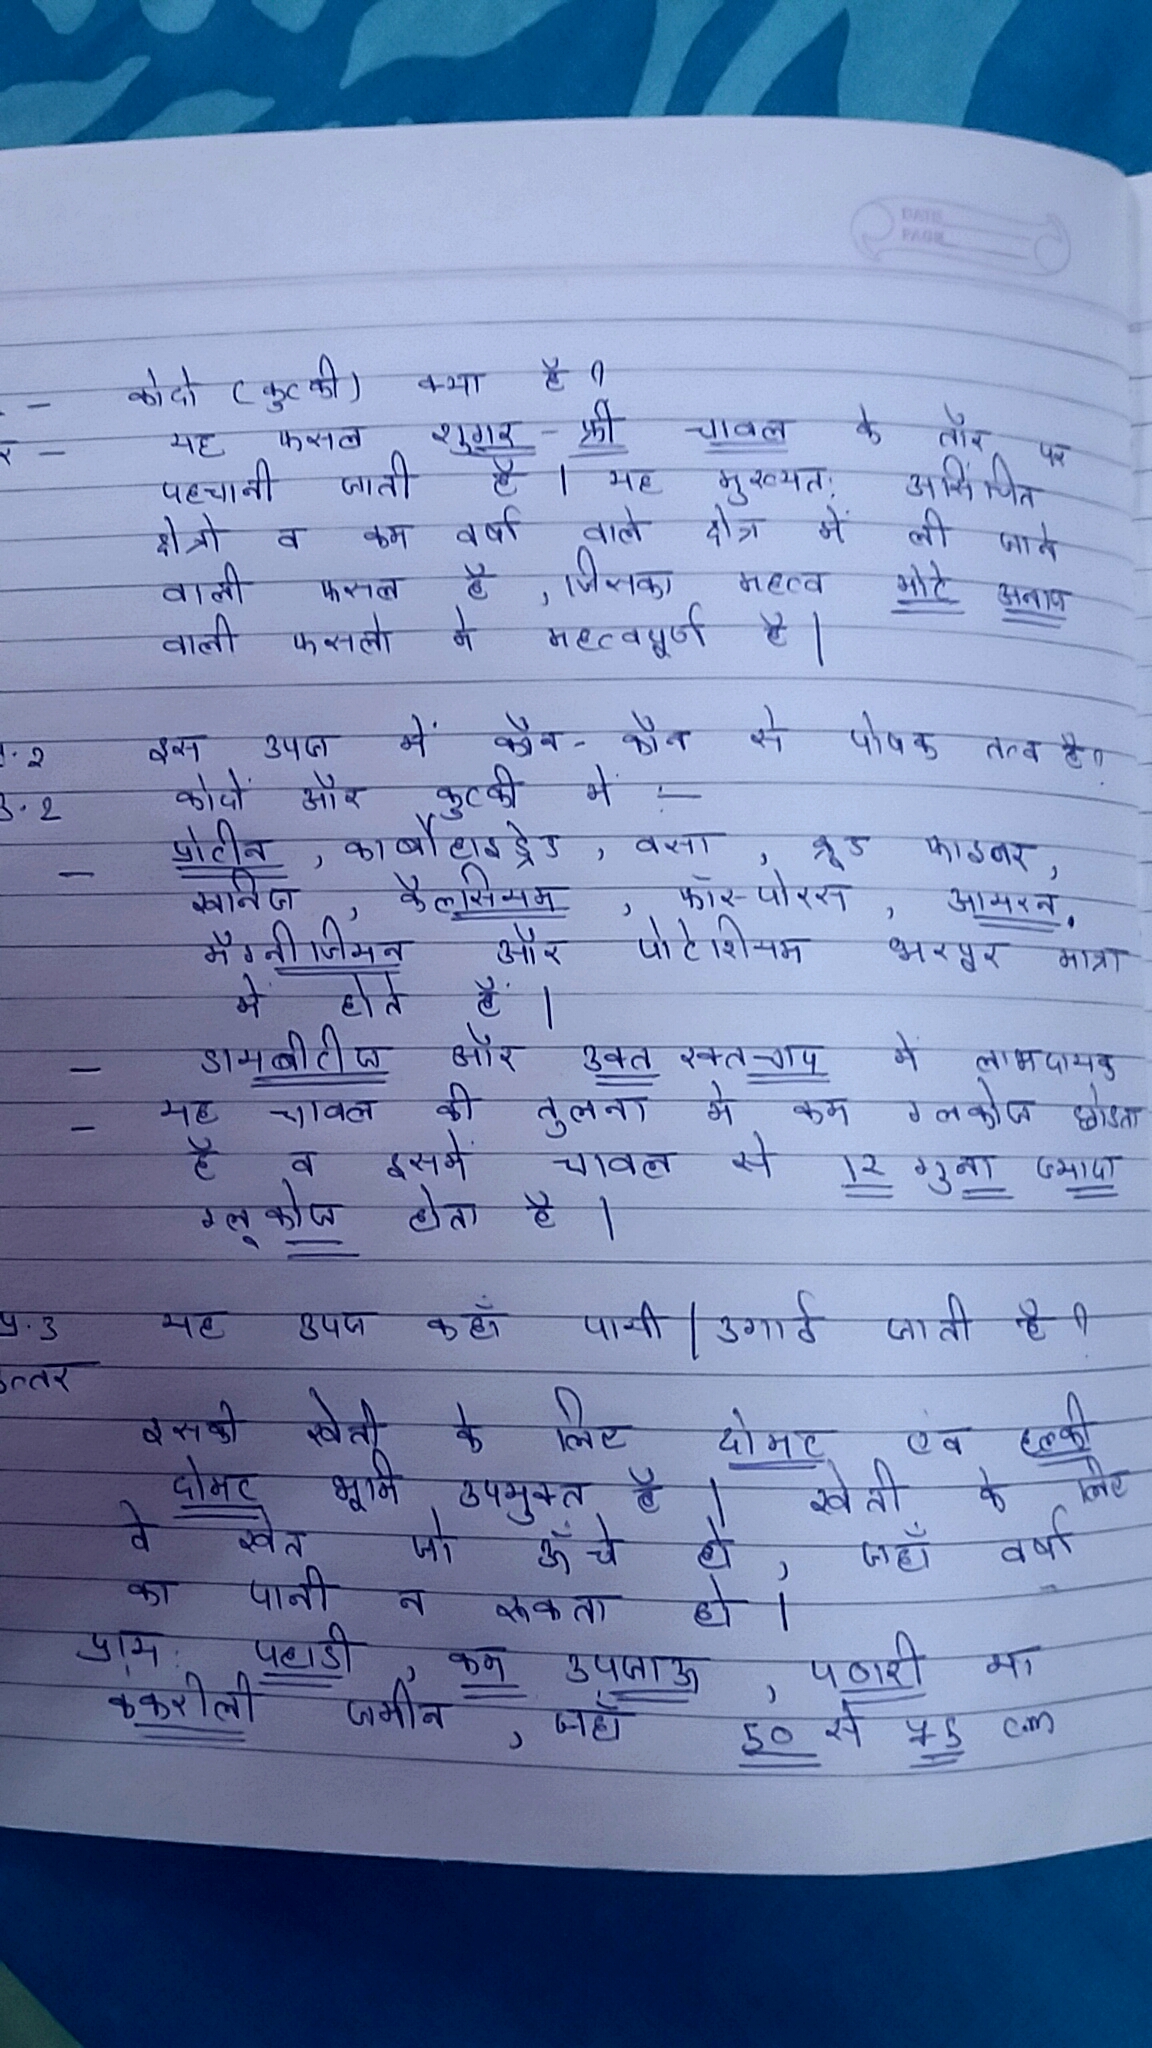 DATE
PAGE
- कोदो (कुटकी) क्या है?
र - यह फसल शुगर - फ्री चावल के तौर पर
पहचानी जाती है । यह मुख्यत: असिंचित
क्षेत्रो व कम वर्षा वाले क्षेत्र में ली जाने
वाली फसल है , जिसका महत्व मोटे अनाज
वाली फसलो मे महत्वपूर्ण है ।
प्र.2 इस उपज में कौन - कौन से पोषक तत्व है?
उ.2 कोदों और कुटकी में :-
- प्रोटीन , कार्बोहाइड्रेड , वसा , क्रूड फाइबर,
खनिज , कैल्सियम , फॉस्पोरस , आयरन,
मैग्नीजियन और पोटेशियम भरपूर मात्रा
में होते हैं ।
- डायबीटीज और उक्त रक्त-चाप में लाभदायक
- यह चावल की तुलना मे कम ग्लकोज छोडता
है व इसमें चावल से 12 गुना ज्यादा
ग्लूकोज होता है ।
प्र.3 यह उपज कहाँ पायी / उगाई जाती है?
उत्तर
इसकी खेती के लिए दोमट एवं हल्की
दोमट भूमि उपयुक्त है । खेती के लिए
वे खेत जो ऊँचे हो , जहाँ वर्षा
का पानी न रूकता हो ।
प्राय: पहाडी , कम उपजाऊ , पठारी या
कंकरीली जमीन , जहाँ 50 से 75 cm